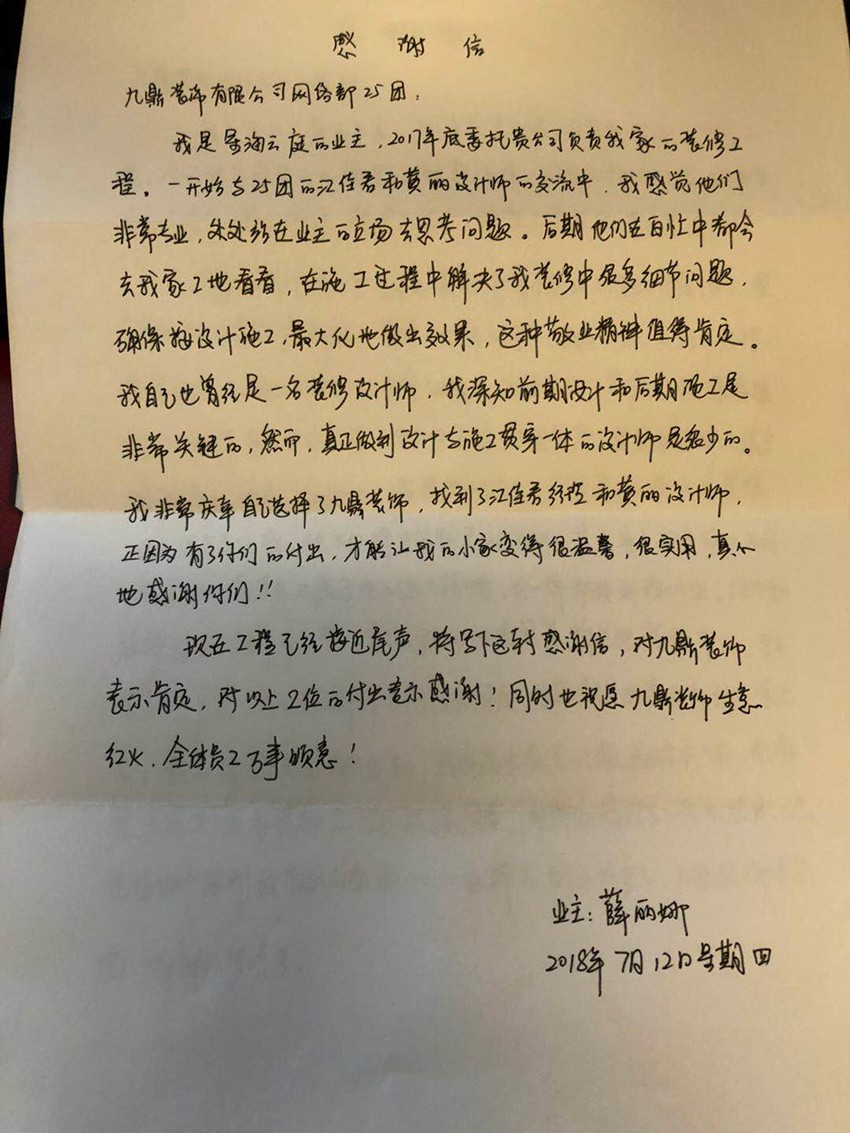 感谢信
九鼎装饰有限公司网络部25团:
我是星海云庭的业主,2017年底委托贵公司负责我家的装修工
程。一开始与25团的江佳君和黄丽设计师的交流中,我感觉他们
非常专业,处处站在业主的立场去思考问题。后期他们在百忙中都会
去我家工地看看,在施工过程中解决了我装修中很多细节问题,
确保按设计施工,最大化地做出效果,这种敬业精神值得肯定。
我自己也曾经是一名装修设计师,我深知前期设计和后期施工是
非常关键的,然而,真正做到设计与施工贯穿一体的设计师是多少的。
我非常庆幸自己选择了九鼎装饰,找到了江佳君经理和黄丽设计师,
正因为有了你们的付出,才能让我的小家变得很温馨,很实用,真心
地感谢你们!!
现在工程已经接近尾声,特写下这封感谢信,对九鼎装饰
表示肯定,对以上2位的付出表示感谢!同时也祝愿九鼎装饰生意
红火,全体员工万事顺意!
业主:薛丽娜
2018年7月12日星期四